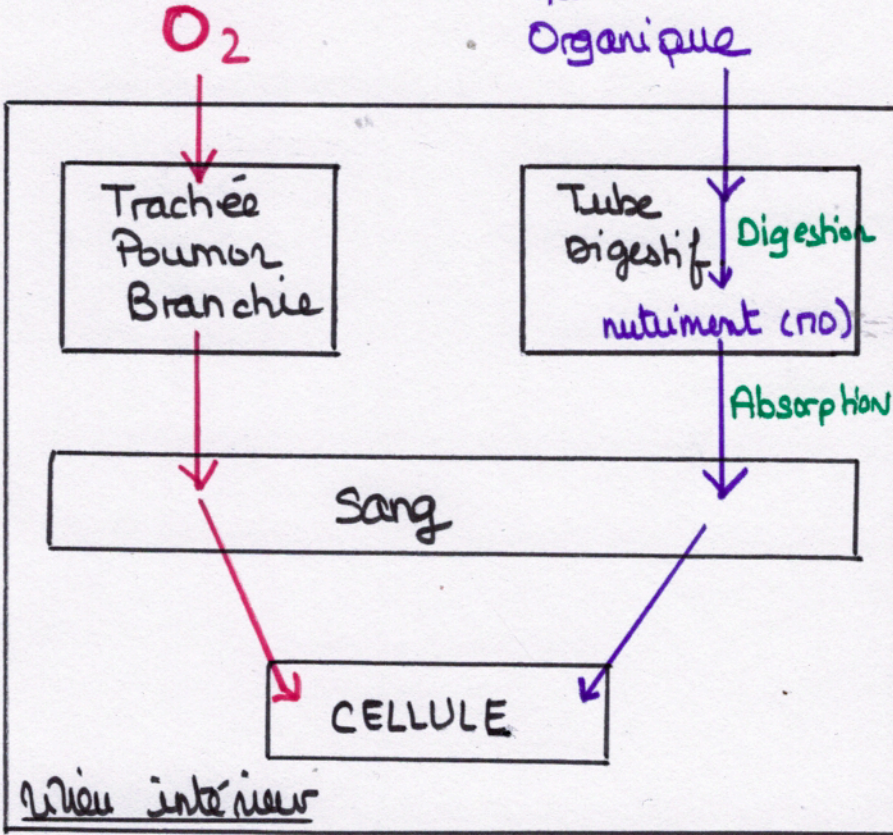 O2
Organique
Trachée
Poumon
Branchie
Tube
Digestif
Digestion
nutriment (MO)
Absorption
Sang
CELLULE
Milieu intérieur